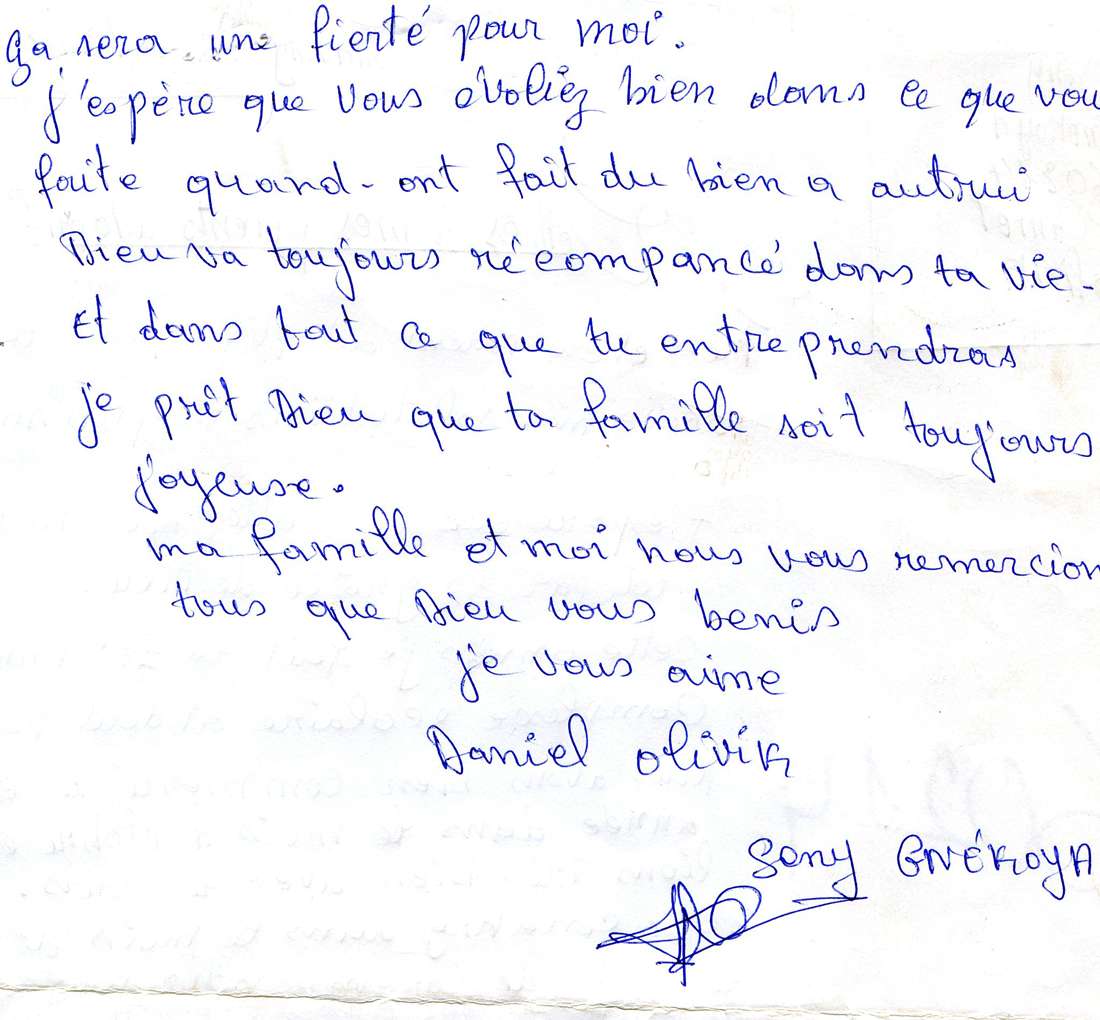 ça sera une fierté pour moi.
j'espère que vous évoliez bien dans ce que vou
faite quand-ont fait du bien a autrui
Dieu va toujours récompancé dans ta vie-
Et dans tout ce que tu entreprendras
je prêt Dieu que ta famille soit toujours
joyeuse.
ma famille et moi nous vous remercion
tous que Dieu vous benis
je vous aime
Daniel Olivik
Sony GNÉKOYA